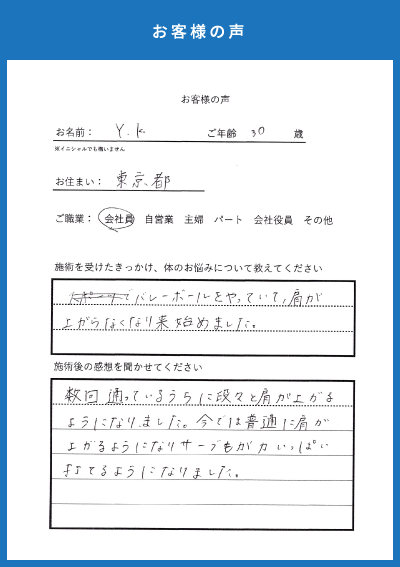 お客様の声
お客様の声
お名前： Y.K ご年齢 30 歳
※イニシャルでも構いません
お住まい： 東京都
ご職業： 会社員 自営業 主婦 パート 会社役員 その他
施術を受けたきっかけ、体のお悩みについて教えてください
バレーボールをやっていて、肩が
上がらなくなり来始めました。
施術後の感想を聞かせてください
数回通っているうちに段々と肩が上がる
ようになりました。今では普通に肩が
上がるようになりサーブも力いっぱい
打てるようになりました。